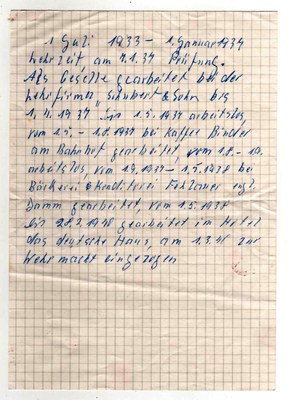 1 Juli 1933 - 1. Januar 1937
Lehrzeit am 7.1.37 Prüfung.
Als Geselle gearbeitet bei der
Lehrfirma Schubert & Sohn bis
1.4.1937 bis 1.5.1937 arbeitslos,
vom 1.5. - 1.8.1937 bei Kaffee Binder
am Bahnhof gearbeitet, vom 1.8. -
arbeitslos, vom 1.9.1937 - 1.5.1938 bei
Bäckerei & Konditorei
Damm gearbeitet, vom 1.5.1938
bis 28.2.1940 gearbeitet im Hotel
das deutsche Haus, am 1.3.40 zur
Wehrmacht eingezogen